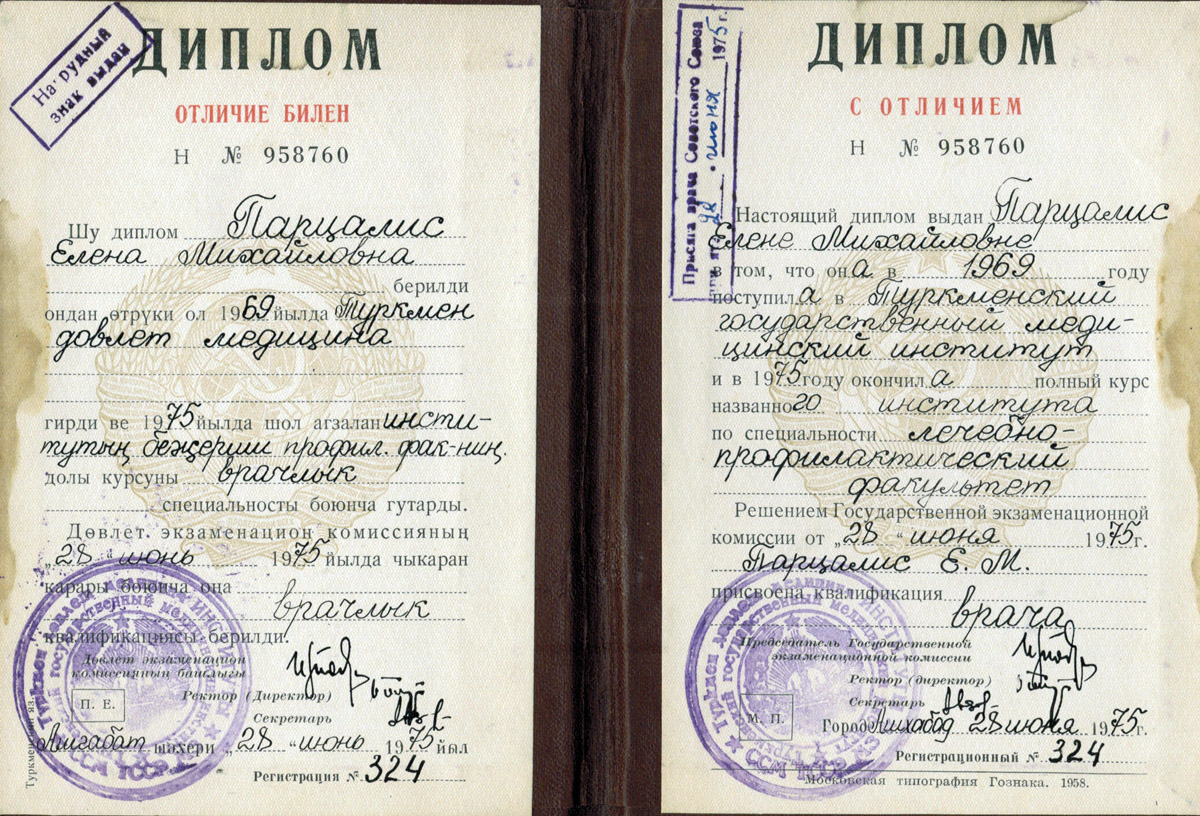 Нагрудный
знак выдан
ДИПЛОМ
ОТЛИЧИЕ БИЛЕН
Н № 958760
Шу диплом Парцалис
Елена Михайловна
берилди
ондан өтрүки ол 1969 йылда Туркмен
довлет медицина
гирди ве 1975 йылда шол агзалан инсти-
тутың бежериш профил. фак-ниң.
долы курсуны врачлык
специальносты боюнча гутарды.
Дөвлет экзаменацион комиссияның
„28 “ июнь 1975 йылда чыкаран
карары боюнча она
врачлык
квалификациясы берилди.
Дөвлет экзаменацион
комиссияның башлыгы
Ректор (Директор)
П. Е.
Секретарь
Ашгабат шахери „28 “ июнь 1975 йыл
Регистрация № 324
Туркменский яз.
ДИПЛОМ
С ОТЛИЧИЕМ
Н № 958760
Присяга врача Советского Союза
принята 28 • июня 1975 г.
Настоящий диплом выдан Парцалис
Елене Михайловне
в том, что она в 1969 году
поступила в Туркменский
государственный меди-
цинский институт
и в 1975 году окончила полный курс
названного института
по специальности лечебно-
профилактический
факультет
Решением Государственной экзаменационной
комиссии от „28 “ июня 1975 г.
Парцалис Е. М.
присвоена квалификация
врача
Председатель Государственной
экзаменационной комиссии
Ректор (директор)
Секретарь
М. П.
Город Ашхабад 28 июня 1975 г.
Регистрационный № 324
Московская типография Гознака. 1958.